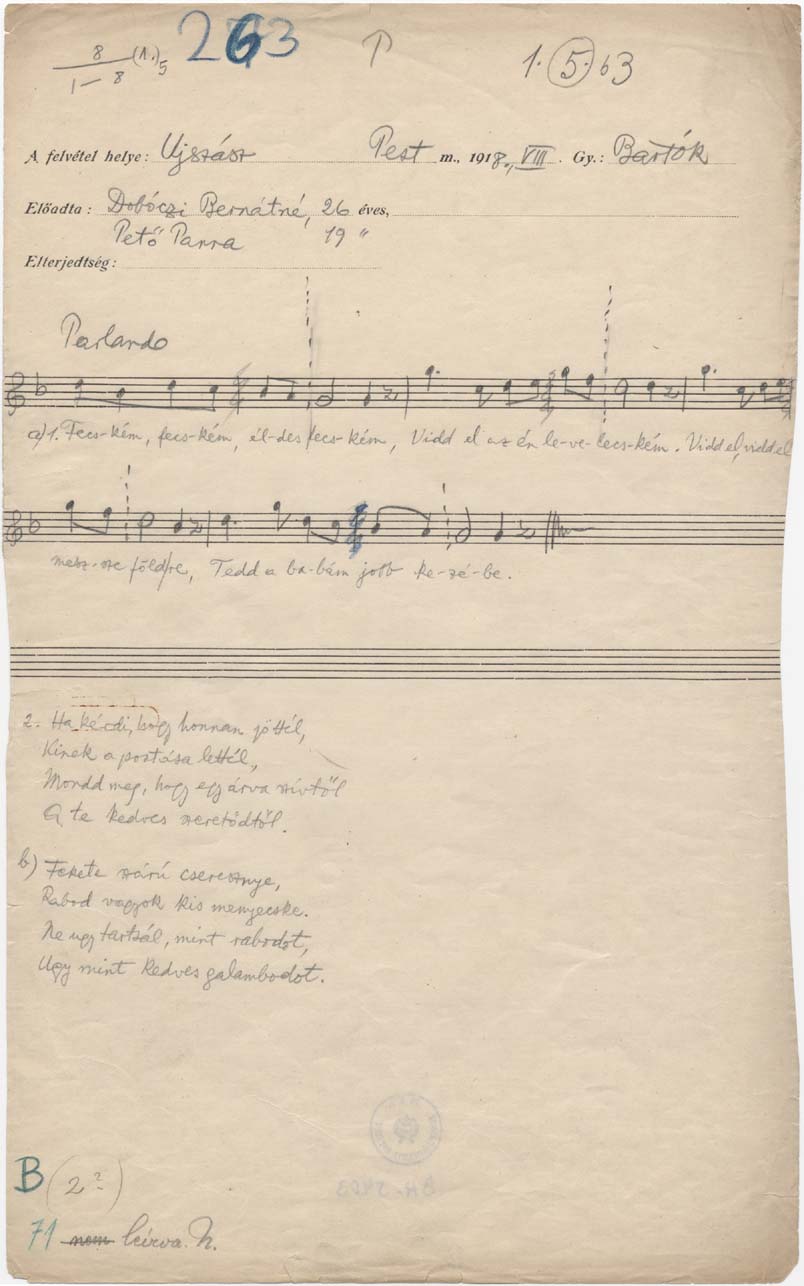 8 (1.) 5 263 1. 5. 63
1 — 8
A felvétel helye: Ujszász Pest m., 1918., VIII. Gy.: Bartók
Előadta: Dobóczi Bernátné, 26 éves,
Pető Panna 19 "
Elterjedtség:
Parlando
a) 1. Fecs-kém, fecs-kém, él-des fecs-kém, Vidd el az én le-ve-lecs-kém. Vidd el, vidd el
mesz-sze föld/re, Tedd a ba-bám jobb ke-zé-be.
2. Ha kérdi, hogy honnan jöttél,
Kinek a postása lettél,
Mondd meg, hogy egy árva szívtől
A te kedves szeretődtől.
b) Fekete szárú cseresznye,
Rabod vagyok kis menyecske.
Ne ugy tartsál, mint rabodot,
Ugy mint kedves galambodot.
B (2?)
71 nem leírva. N.